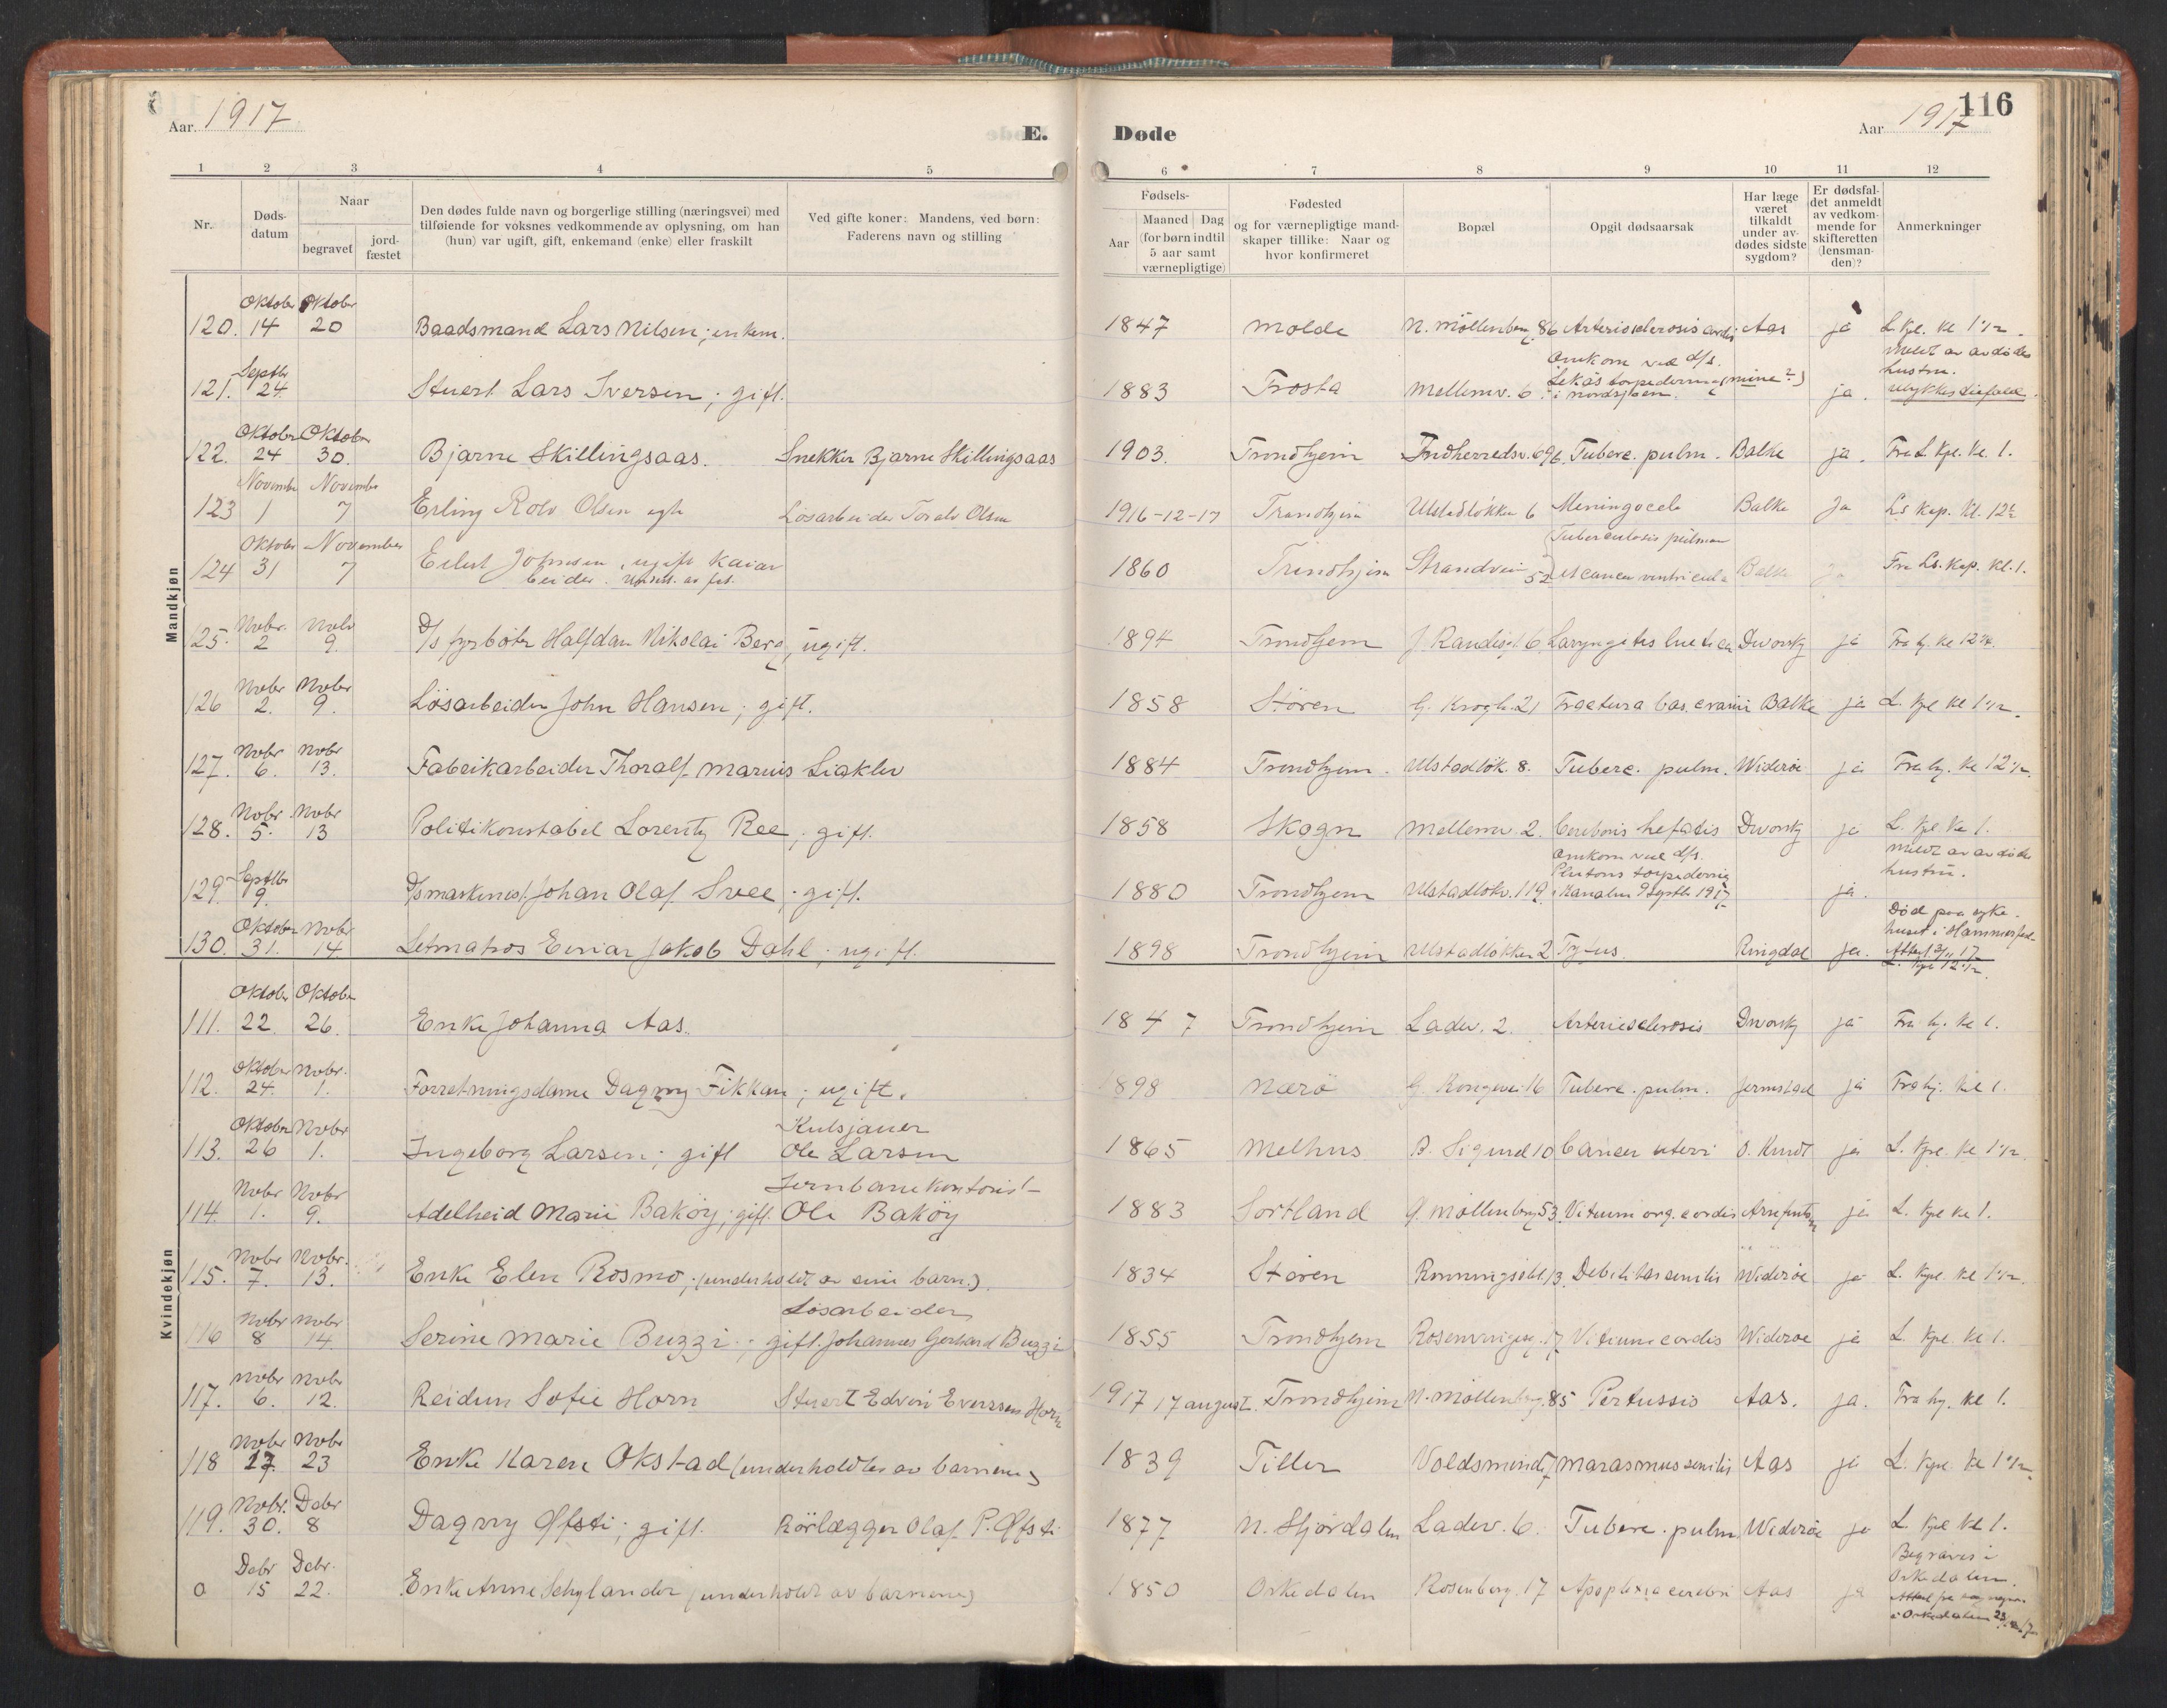 Aar 1917
E.
Døde
Aar 1917
116
1 2 3 4 5 6 7 8 9 10 11 12
Nr.
Døds-
datum
Naar
begravet
jord-
fæstet
Den dødes fulde navn og borgerlige stilling (næringsvei) med
tilføiende for voksnes vedkommende av oplysning, om han
(hun) var ugift, gift, enkemand (enke) eller fraskilt
Ved gifte koner: Mandens, ved børn:
Faderens navn og stilling
Fødsels-
Aar
Maaned Dag
(for børn indtil
5 aar samt
værnepligtige)
Fødested
og for værnepligtige mand-
skaper tillike: Naar og
hvor konfirmeret
Bopæl
Opgit dødsaarsak
Har læge
været
tilkaldt
under av-
dødes sidste
sygdom?
Er dødsfal-
det anmeldt
av vedkom-
mende for
skifteretten
(lensman-
den)?
Anmerkninger
Mandkjøn
Oktober Oktober
120. 14 20 Baadsmand Lars Nilsen; enkem. 1847 Molde N. Möllenberg 86 Arteriosclerosis cordis Aas ja L. kpl. kl 1 1/2.
Septbr
Omkom ved d/s.
Meldt av avdødes
hustru.
121. 24 Stuert Lars Iversen; gift. 1883 Frosta Mellemv. 6. Lekås torpedering (mine?) ja. Ulykkestilfæld.
i Nordsjøen.
Oktober Oktober
122. 24 30. Bjarne Skillingsaas. Snekker Bjarne Skillingsaas 1903. Trondhjem Indherredsv. 69b. Туберc. pulm. Balke ja. Fra L. kpl. kl. 1.
November November
123 1 7 Erling Rolv Olsen egte Løsarbeider Toralv Olsen 1916-12-17 Trondhjem Ulstadløkken 6 Meningocele Balke Ja Ls kap. kl. 12 1/2
Oktober November
Tuberculosis pulmon
124 31 7 Eilert Johnsen, ugift Kaiar 1860 Trondhjem Strandvei 52 et cancer ventricula Balke Ja Fra Ls. Kap. kl. 1.
beider.
Novbr. Novbr
125. 2 9. D/s fyrbøter Halfdan Nikolai Berg, ugift. 1894 Trondhjem J. Randisgt. 6 Laryngitis luetica Dworsky ja Fra hj. kl 12 1/2.
Novbr Novbr
126 2. 9. Løsarbeider John Hansen; gift. 1858 Støren G. Krogh. 21 Fractura bas. cranii Balke ja L. kpl kl 1 1/2.
Novbr Novbr
127. 6. 13. Fabrikarbeider Thoralf Marius Liaklev 1884 Trondhjem. Ulstadløk. 8. Tuberc. pulm. Widerøe ja Fra hj. kl 12 1/2.
Novbr Novbr
128. 5. 13 Politikonstabel Lorentz Ree; gift. 1858 Skogn Mellemv. 2. hepatis Dworsky ja L. kpl kl 1.
Septbr
Omkom ved d/s.
Meldt av avdødes
hustru.
Plutons torpedering
129. 9. D/s maskinist. Johan Olaf Svee; gift. 1880 Trondhjem Ulstadløkv. 119. i Kanalen 9 Septbr 1917 ja.
Oktober Novbr
Død paa syke-
huset i Hammerfest
130. 31. 14. Letmatros Einar Jakob Dahl; ugift. 1898 Trondhjem Ulstadløkken 2 Tyfus. Ringdal ja. Attest 3/11 17
L. kpl 12 1/2.
Kvindekjøn
Oktober Oktober
111. 22. 26. Enke Johanna Aas. 1847 Trondhjem Ladev. 2. Arteriesclerosis Dworsky ja Fra hj. kl 1.
Oktober Novbr.
112. 24. 1. Forretningsdame Dagny Fikkan; ugift. 1898 Nærö G. Kongevei 16 Tuberc. pulm. Jermstad ja Fra hj. kl 1.
Oktober Novbr
Kulsjauer
113. 26 1. Ingeborg Larsen; gift Ole Larsen 1865 Melhus B. Sigurd 10 Cancer uteri O. Knudt ja L. kpl. kl 1 1/2.
Novbr Novbr
Jernbanekontorist
114. 1. 9. Adelheid Marie Baköy; gift. Ole Baköy 1883 Sortland G. Møllenberg 53. Vitium org. cordis ja L. kpl kl 1.
Novbr Novbr.
115. 7. 13. Enke Elen Rosmo; (underholdt av sine barn.) 1834 Støren Rønningsbkt. 13. Debilitas senilis Widerøe ja L. kpl. kl 1 1/2.
Novbr Novbr
Løsarbeider
116 8 14. Serine Marie Buzzi; gift. Johannes Gerhard Buzzi 1855 Trondhjem 17 Vitium cordis Widerøe ja L. kpl. kl 1.
Novbr Novbr
117. 6. 12. Reidun Sofie Horn Stuert Edvin Evensen Horn 1917 17 august. Trondhjem N. Möllenberg. 85 Pertussis Aas. ja. Fra hj. kl 1.
Novbr Novbr
118 17. 23 Enke Karen Okstad (underholdtes av barnene) 1839 Tiller Voldsminde Marasmus senilis Aas ja L. kpl kl 1 1/2.
Novbr. Debr
119. 30. 8 Dagny Øfsti; gift. Rörlægger Olaf P. Øfsti 1877 N. Stjørdalen Ladev. 6. Tuberc. pulm Widerøe ja L. kpl kl 1.
Debr Debr.
Begraves i
Orkedalen.
0 15 22. Enke Anne Schylander (underholdt av barnene) 1850 Orkedalen Rosenborg. 17 Apoplexia cerebri Aas ja
i Orkedalen